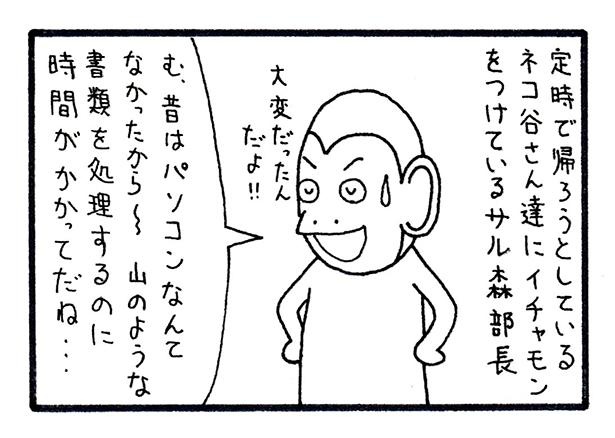 定時で帰ろうとしている
ネコ谷さん達にイチャモン
をつけているサル森部長
大変だったん
だよ!!
む、昔はパソコンなんて
なかったから〜 山のような
書類を処理するのに
時間がかかってだね・・・